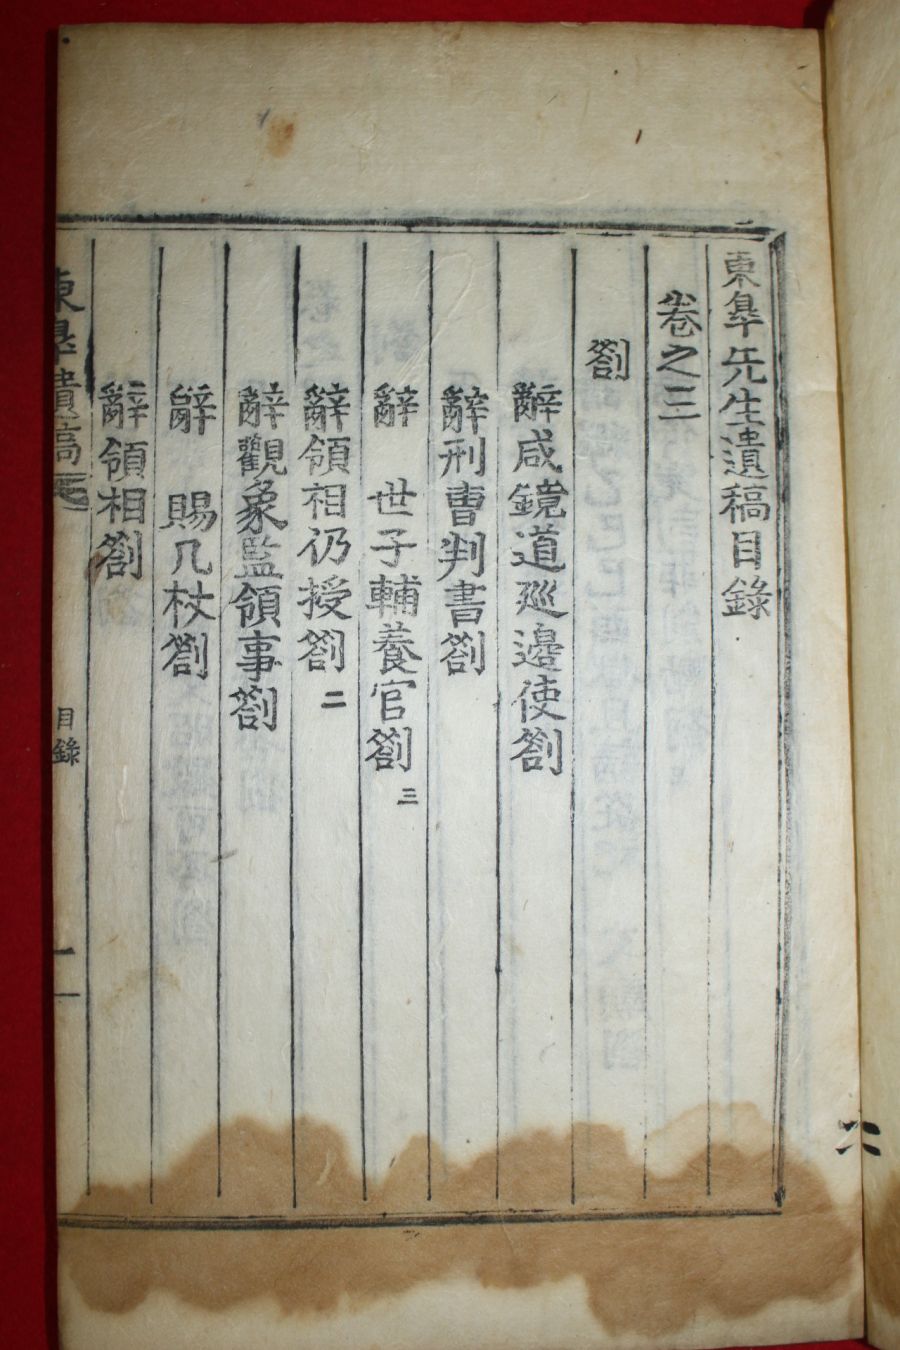 東皐先生遺稿目錄
卷之三
劄
辭咸鏡道巡邊使劄
辭刑曹判書劄
辭 世子輔養官劄 三
辭領相仍授劄 二
辭觀象監領事劄
辭 賜几杖劄
辭領相劄
東皐遺稿 目錄 一